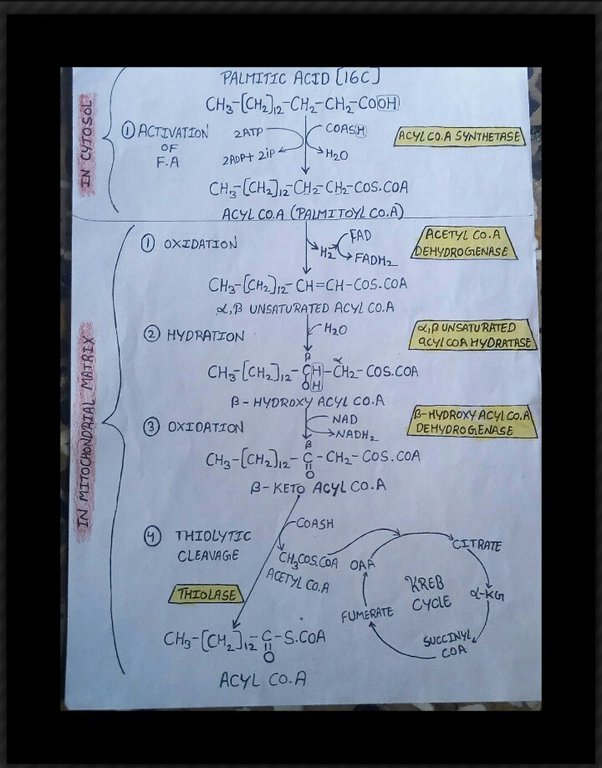 PALMITIC ACID [16C]
CH3-[CH2]12-CH2-CH2-COOH
IN CYTOSOL
① ACTIVATION
OF
F.A
2ATP
2ADP + 2iP
COASH
H2O
ACYL CO.A SYNTHETASE
CH3-[CH2]12-CH2-CH2-COS.COA
ACYL CO.A (PALMITOYL CO.A)
IN MITOCHONDRIAL MATRIX
① OXIDATION
H2
FAD
FADH2
ACETYL CO.A
DEHYDROGENASE
CH3-[CH2]12-CH=CH-COS-COA
α,β UNSATURATED ACYL CO.A
② HYDRATION
H2O
α,β UNSATURATED
acyl COA HYDRATASE
β α
CH3-[CH2]12-CH-CH2-COS.COA
OH
β-HYDROXY ACYL CO.A
③ OXIDATION
NAD
NADH2
β-HYDROXY ACYL CO.A
DEHYDROGENASE
β
CH3-[CH2]12-C-CH2-COS.COA
O
β-KETO ACYL CO.A
④ THIOLYTIC
CLEAVAGE
COASH
CH3COS.COA
ACETYL CO.A
THIOLASE
OAA
CITRATE
α-KG
SUCCINYL
COA
FUMERATE
KREB
CYCLE
CH3-[CH2]12-C-S.COA
O
ACYL CO.A